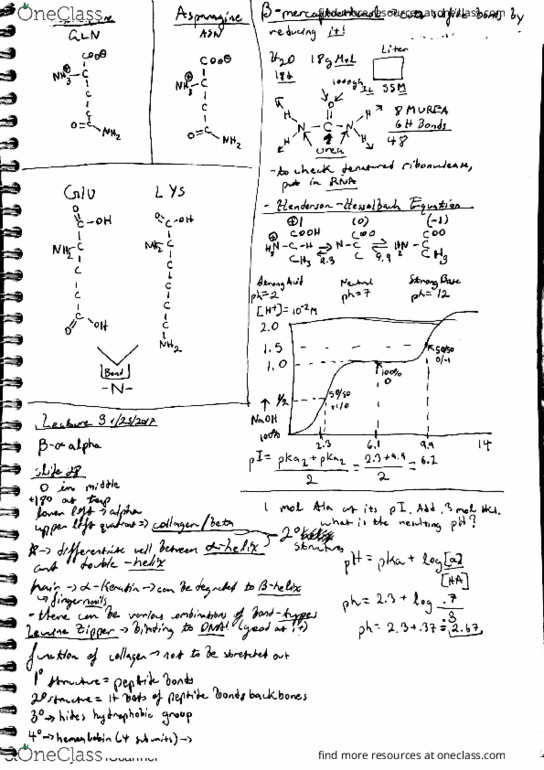 OneClass
GLN
COO⊖
NH3 - C -
C
C
O=C
NH2
Asparagine
ASN
COO⊖
NH3 - C -
C
O=C
NH2
Glu
O
C-OH
NH2
C
C
C
O
OH
LYS
O
C-OH
NH2
C
C
C
C
C
NH2
Bond
-N-
find more resources at oneclass.com
by
reducing it!
H2O 18g
Liter
18d
1000g
SSM
O
H
N - C - N
H
H
H
urea
8 M UREA
6 H Bonds
48
-to check denatured ribonuclease,
put in RNA
- Henderson-Hesselbach Equation
⊕1 (0) (-1)
COOH COO COO
H3N - C - H ⇌ N - C ⇌ HN - C
CH3 2.3 C 9.9 CH3
Strong Acid Neutral Strong Base
ph=2 ph=7 ph=12
[H+] = 10^-2 M
2.0
1.5
1.0
1/2
NaOH
100%
50/50
+1/0
100%
0
50/50
0/-1
2.3 6.1 9.9 14
pI = pKa2 + pKa2 / 2 = 2.3 + 9.9 / 2 = 6.1
Lecture 3 1/25/2017
β-α alpha
slide 28
O in middle
+180 at top
lower left → alpha
upper left quadrant => collagen/beta
2° structures
→ differentiate well between α-helix
and double-helix
hair → α-Keratin → can be degraded to β-helix
↳ fingernails
- there can be various combination of bond-types
Leucine Zipper → binding to DNA!
function of collagen → not to be stretched out
1° structure = peptide bonds
2° structure = H bots of peptide bonds backbones
3° → hides hydrophobic group
4° → hemoglobin (4 subunits) →
1 mol Ala at its pI. Add .3 mol HCl.
what is the resulting pH?
pH = pKa + log [a] / [HA]
ph = 2.3 + log .7 / .3
ph = 2.3 + .37 = 2.67
OneClass
find more resources at oneclass.com